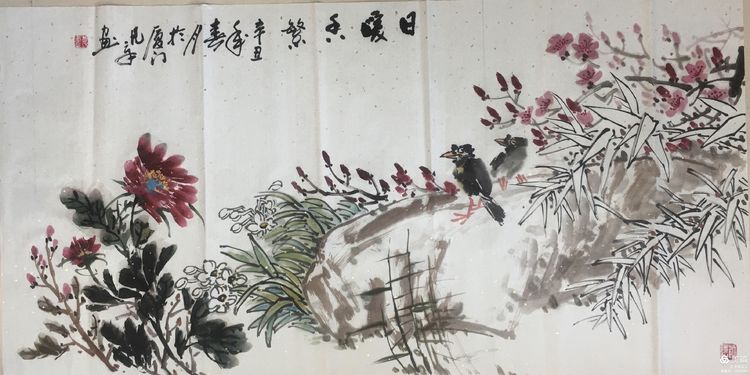 日暖香繁
辛丑
年
春
月
於
厦门
凡
画